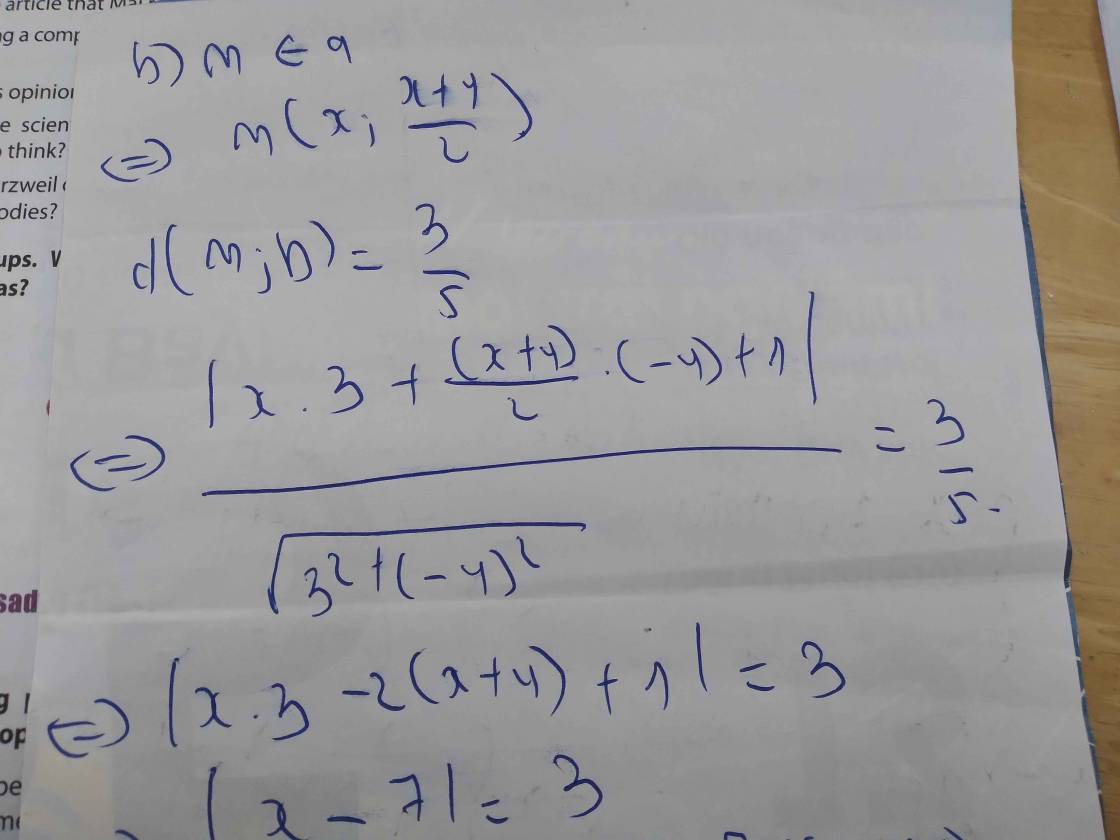 article that
ng a comp
s opinion
e scien
think?
rzweil
odies?
ups. W
as?
sad
op
be
b) M ∈ a
⇔ M(x; \frac{x+4}{2})
d(M;b) = \frac{3}{5}
⇔ \frac{|x.3 + \frac{(x+4)}{2}.(-4)+1|}{\sqrt{3^2+(-4)^2}} = \frac{3}{5}.
⇔ |x.3 -2(x+4) + 1| = 3
|x - 7| = 3